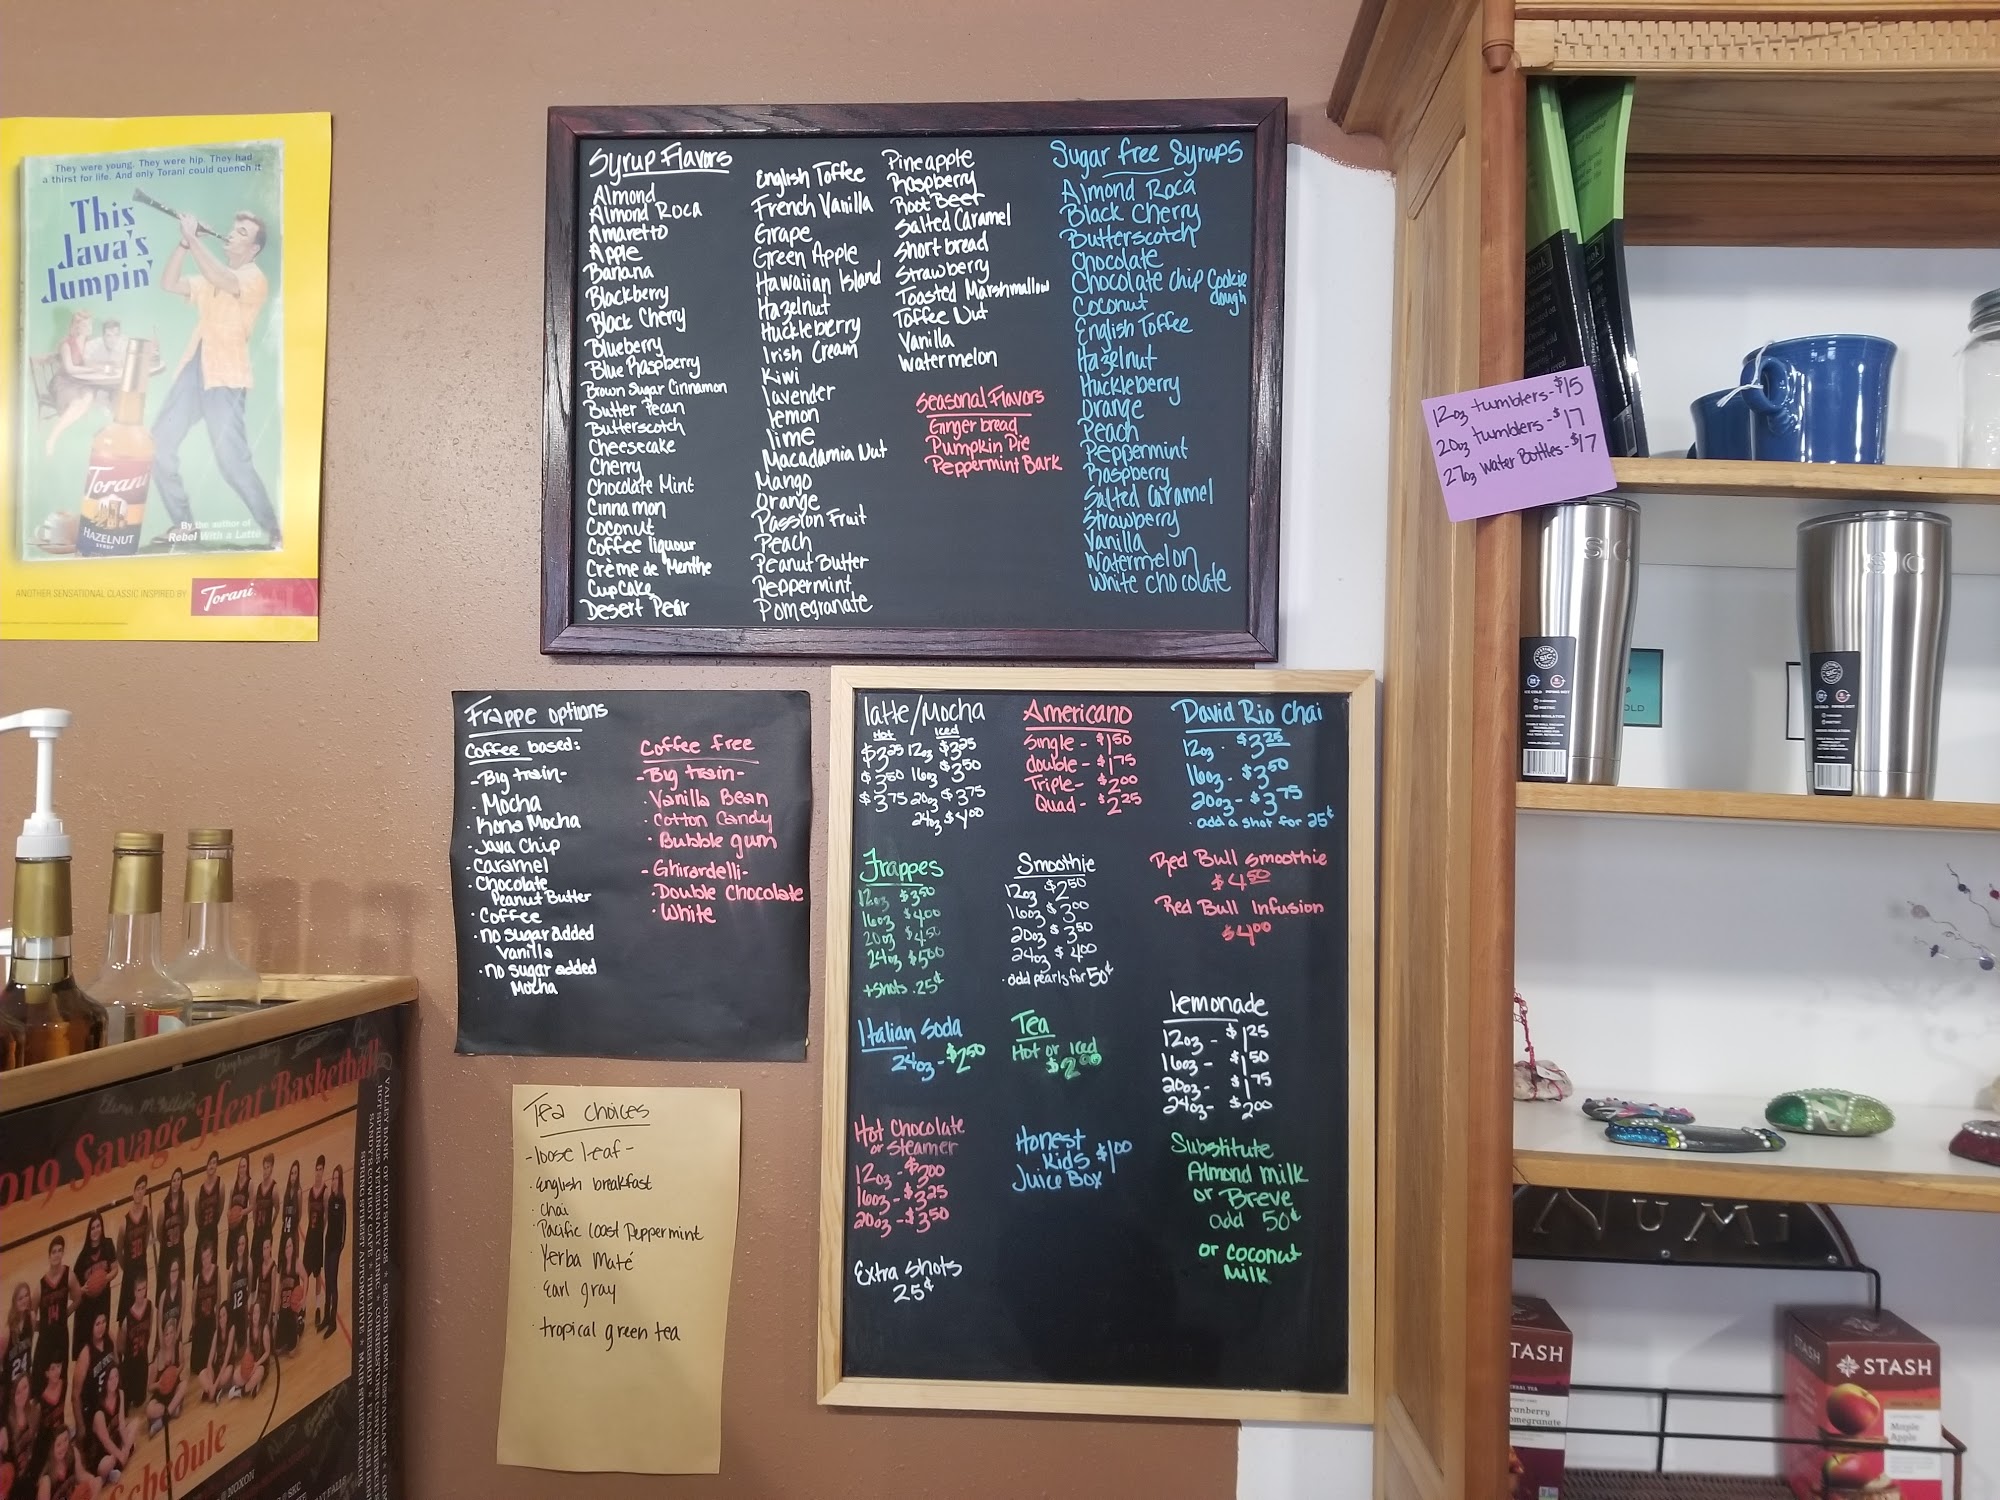 They were young. They were hip. They had
a thirst for life. And only Torani could quench it
This
Java's
Jumpin'
Torani
HAZELNUT
By the author of
Rebel With a Latté
ANOTHER SENSATIONAL CLASSIC INSPIRED BY
Torani
Syrup Flavors
Almond
Almond Roca
Amaretto
Apple
Banana
Blackberry
Black Cherry
Blueberry
Blue Raspberry
Brown Sugar Cinnamon
Butter Pecan
Butterscotch
Cheesecake
Cherry
Chocolate Mint
Cinnamon
Coconut
Coffee liquour
Crème de Menthe
Cupcake
Desert Pear
English Toffee
French Vanilla
Grape
Green Apple
Hawaiian Island
Hazelnut
Huckleberry
Irish Cream
Kiwi
lavender
lemon
lime
Macadamia Nut
Mango
Orange
Passion Fruit
Peach
Peanut Butter
Peppermint
Pomegranate
Pineapple
Raspberry
Root Beer
Salted Caramel
Short bread
Strawberry
Toasted Marshmallow
Toffee Nut
Vanilla
Watermelon
Seasonal Flavors
Ginger bread
Pumpkin Pie
Peppermint Bark
Sugar free Syrups
Almond Roca
Black Cherry
Butterscotch
Chocolate
Chocolate Chip Cookie
dough
Coconut
English Toffee
Hazelnut
Huckleberry
Orange
Peach
Peppermint
Raspberry
Salted Caramel
Strawberry
Vanilla
Watermelon
White chocolate
12oz tumblers-$15
20oz tumblers-$17
27oz Water Bottles-$17
SIC
SIC
Frappe options
Coffee based:
-Big train-
· Mocha
· Kona Mocha
· Java Chip
· Caramel
· Chocolate
Peanut Butter
· Coffee
· no sugar added
Vanilla
· no sugar added
Mocha
Coffee free
-Big train-
· Vanilla Bean
· Cotton Candy
· Bubble gum
- Ghirardelli-
· Double Chocolate
· White
latte/Mocha
Hot Iced
$3.25 12oz $3.25
$3.50 16oz $3.50
$3.75 20oz $3.75
24oz $4.00
Americano
Single - $1.50
double - $1.75
Triple- $2.00
Quad - $2.25
David Rio Chai
12oz - $3.25
16oz - $3.50
20oz - $3.75
· add a shot for 25¢
Frappes
12oz $3.50
16oz $4.00
20oz $4.50
24oz $5.00
+shots .25¢
Smoothie
12oz $2.50
16oz $3.00
20oz $3.50
24oz $4.00
· add pearls for 50¢
Red Bull Smoothie
$4.50
Red Bull Infusion
$4.00
Italian Soda
24oz - $2.50
Tea
Hot or iced
$2.00
lemonade
12oz - $1.25
16oz - $1.50
20oz - $1.75
24oz- $2.00
Hot Chocolate
or steamer
12oz - $3.00
16oz - $3.25
20oz - $3.50
Honest
Kids $1.00
Juice Box
Substitute
Almond milk
or Breve
add 50¢
or coconut
milk
Extra Shots
25¢
Tea choices
-loose leaf-
· English breakfast
· Chai
· Pacific Coast Peppermint
· Yerba Maté
· Earl gray
· tropical green tea
2019 Savage Heat Basketball
Schedule
NUMI
STASH
Pomegranate
STASH
Maple
Apple